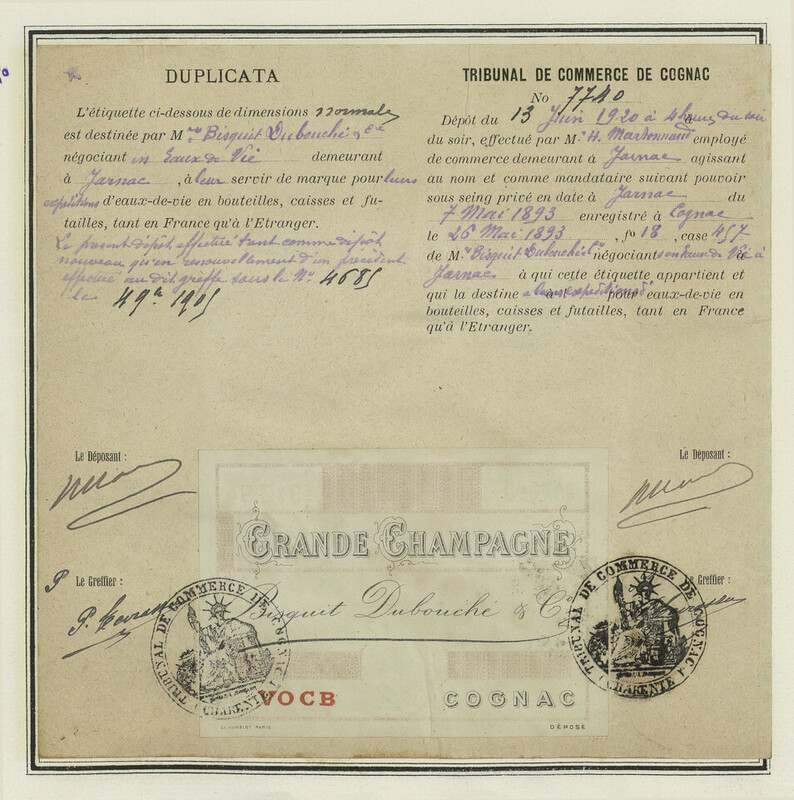 DUPLICATA
L'étiquette ci-dessous de dimensions normale
est destinée par Mrs Bisquit Dubouché & Cie
négociant en Eaux de Vie demeurant
à Jarnac, à leur servir de marque pour leurs
expéditions d'eaux-de-vie en bouteilles, caisses et fu-
tailles, tant en France qu'à l'Etranger.
Le présent dépôt effectué tant comme dépôt
nouveau qu'en renouvellement d'un précédent
effectué au dit greffe sous le No 4685
le 1905
TRIBUNAL DE COMMERCE DE COGNAC
No 7740
Dépôt du 13 Juin 1920 à 4 heures du soir
du soir, effectué par M. H. employé
de commerce demeurant à Jarnac agissant
au nom et comme mandataire suivant pouvoir
sous seing privé en date à Jarnac du
7 Mai 1893 enregistré à Cognac
le 26 Mai 1893, fo 18, case 457
de Mrs Bisquit Dubouché & Cie négociants en Eaux de Vie à
Jarnac à qui cette étiquette appartient et
qui la destine à leurs expéditions d' pour eaux-de-vie en
bouteilles, caisses et futailles, tant en France
qu'à l'Etranger.
Le Déposant :
Le Déposant :
P Le Greffier :
Le Greffier :
GRANDE CHAMPAGNE
Bisquit Dubouché & Co
VOCB
COGNAC
DÉPOSÉ
TRIBUNAL DE COMMERCE DE COGNAC
(CHARENTE)
TRIBUNAL DE COMMERCE DE COGNAC
(CHARENTE)